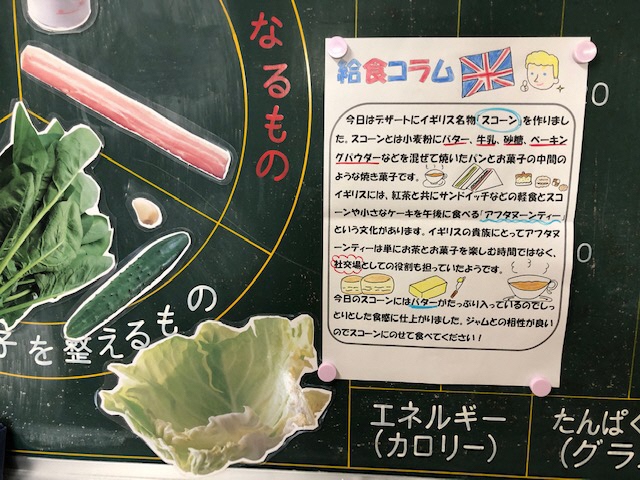 なるもの
給食コラム
今日はデザートにイギリス名物「スコーン」を作りまし
た。スコーンとは小麦粉にバター、牛乳、砂糖、ベーキン
グパウダーなどを混ぜて焼いたパンとお菓子の中間の
ような焼き菓子です。
イギリスには、紅茶と共にサンドイッチなどの軽食とスコ
ーンや小さなケーキを午後に食べる「アフタヌーンティー」
という文化があります。イギリスの貴族にとってアフタヌ
ーンティーは単にお茶とお菓子を楽しむ時間ではなく、
社交場としての役割も担っていたようです。
今日のスコーンにはバターがたっぷり入っているのでしっ
とりとした食感に仕上がりました。ジャムとの相性が良い
のでスコーンにのせて食べてください!
子を整えるもの
エネルギー
(カロリー)
たんぱく
(グラ
0
0